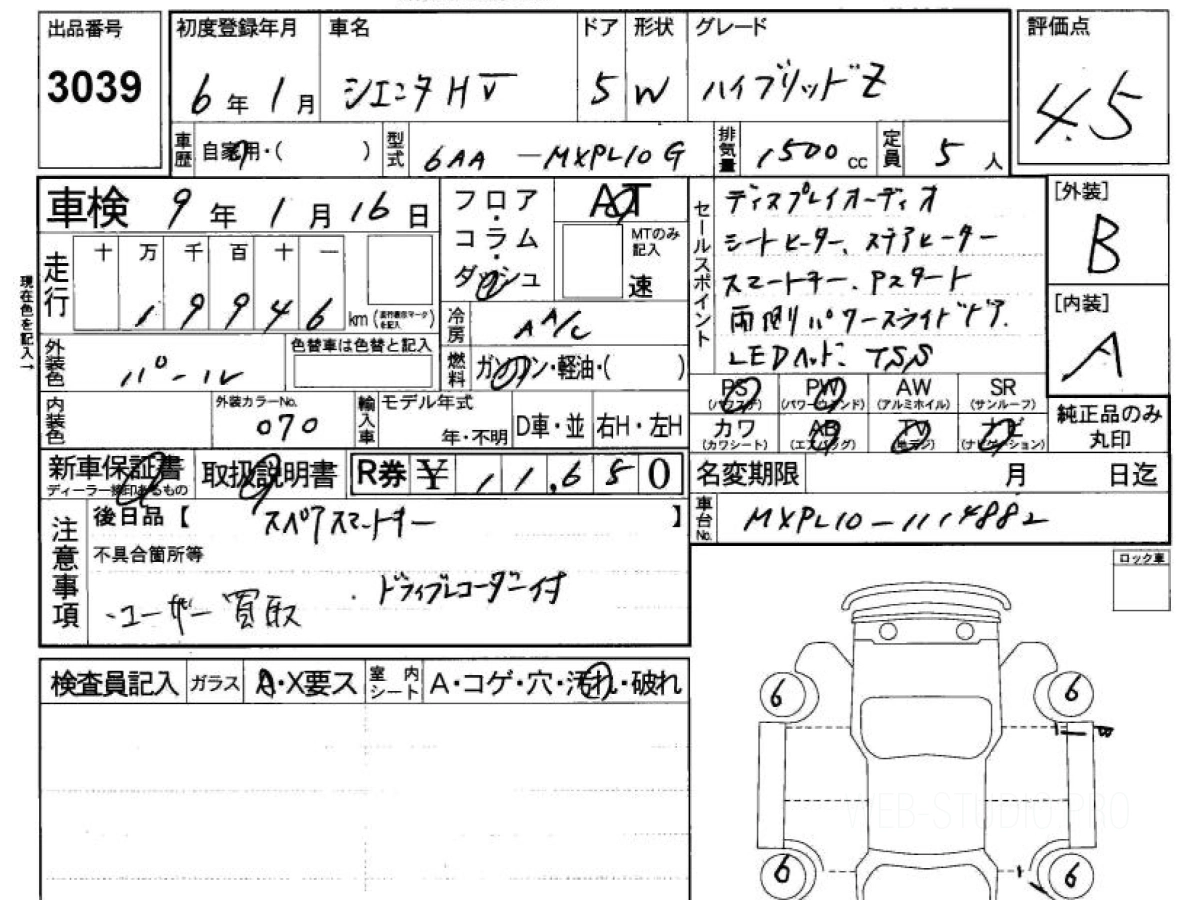 出品番号 初度登録年月 車名 ドア 形状 グレード 評価点
3039 6年1月 シエンタHV 5 W ハイブリッドZ 4.5
車歴 自家用・( ) 型式 6AA-MXPL10G 排気量 1500cc 定員 5人
車検 9年1月16日 フロア・コラム・ダッシュ AT セールスポイント ディスプレイオーディオ [外装]
MTのみ記入 シートヒーター、ステアヒーター B
走行 十 万 千 百 十 一 速 スマートキー、Pスタート [内装]
現在色を記入→ 1 9 9 4 6 km (走行表示マークを記入) 冷房 AA/C 両側パワースライドドア. A
外装色 パール 色替車は色替と記入 燃料 ガソリン・軽油・( ) LEDヘッド、TSS
PS (パワステ) PW (パワーウインド) AW (アルミホイル) SR (サンルーフ) 純正品のみ丸印
内装色 外装カラーNo. 070 輸入車 モデル年式 年・不明 D車・並 右H・左H カワ (カワシート) AB (エアバッグ) TV (地デジ) ナビ (ナビゲーション)
新車保証書 ディーラー捺印あるもの 取扱説明書 R券 ¥ 11,680 名変期限 月 日迄
注意事項 後日品【 スペアスマートキー 】 車台No. MXPL10-1114882
不具合箇所等 ロック車
・ユーザー買取 ・ドライブレコーダー付
検査員記入 ガラス A・X要ス 室内シート A・コゲ・穴・汚れ・破れ
6 6
WEB-STUDIO.PRO
6 6